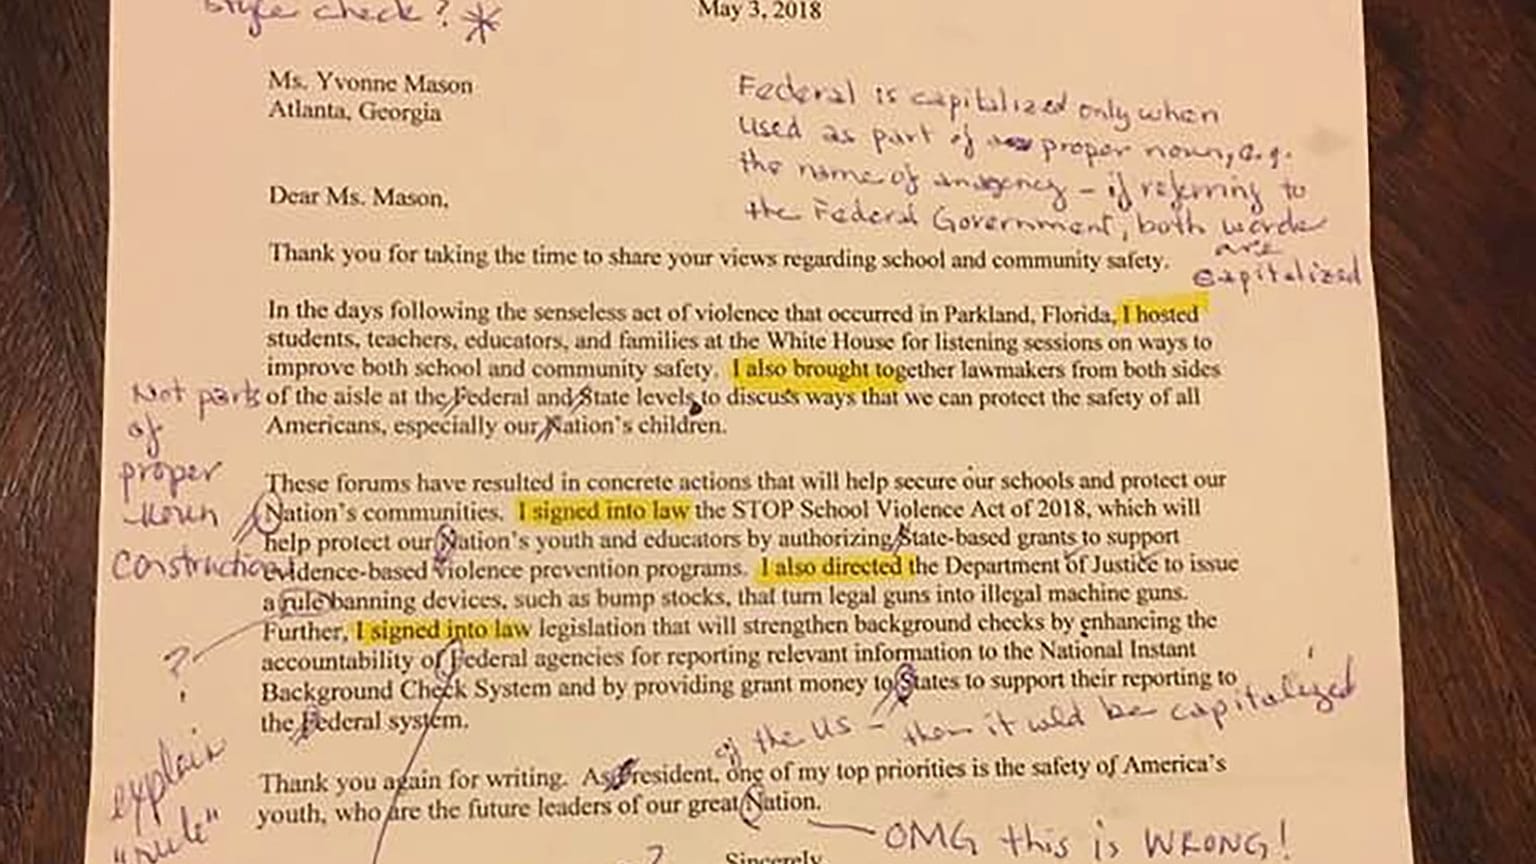 style check? *
May 3, 2018
Ms. Yvonne Mason
Atlanta, Georgia
Federal is capitalized only when
used as part of proper noun, e.g.
the name of an agency – if referring to
the Federal Government, both words
are
capitalized
Dear Ms. Mason,
Thank you for taking the time to share your views regarding school and community safety.
In the days following the senseless act of violence that occurred in Parkland, Florida, I hosted
students, teachers, educators, and families at the White House for listening sessions on ways to
improve both school and community safety. I also brought together lawmakers from both sides
of the aisle at the Federal and State levels to discuss ways that we can protect the safety of all
Americans, especially our Nation's children.
Not parts
of
proper
noun
construction
These forums have resulted in concrete actions that will help secure our schools and protect our
Nation's communities. I signed into law the STOP School Violence Act of 2018, which will
help protect our Nation's youth and educators by authorizing State-based grants to support
evidence-based violence prevention programs. I also directed the Department of Justice to issue
a rule banning devices, such as bump stocks, that turn legal guns into illegal machine guns.
Further, I signed into law legislation that will strengthen background checks by enhancing the
accountability of Federal agencies for reporting relevant information to the National Instant
Background Check System and by providing grant money to States to support their reporting to
the Federal system.
?
explain
"rule"
of the US – then it wld be capitalized
Thank you again for writing. As President, one of my top priorities is the safety of America's
youth, who are the future leaders of our great Nation.
OMG this is WRONG!
?
Sincerely,